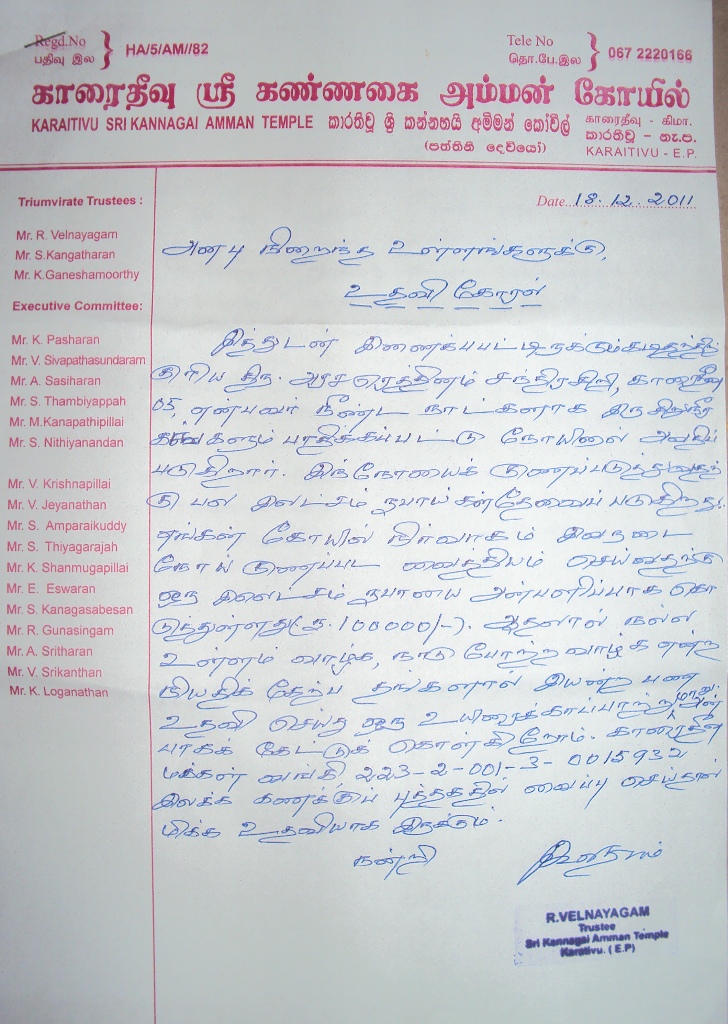 Regd.No } HA/5/AM//82
பதிவு இல
Tele No } 067 2220166
தொ.பே.இல
காரைதீவு ஸ்ரீ கண்ணகை அம்மன் கோயில்
KARAITIVU SRI KANNAGAI AMMAN TEMPLE කාරතිවූ ශ්‍රී කන්නහයි අම්මන් කෝවිල්
(පත්තිනි දෙවියෝ)
காரைதீவு - கிமா.
කාරතිවූ - නැ.ප.
KARAITIVU - E.P.
Triumvirate Trustees :
Mr. R. Velnayagam
Mr. S.Kangatharan
Mr. K.Ganeshamoorthy
Executive Committee:
Mr. K. Pasharan
Mr. V. Sivapathasundaram
Mr. A. Sasiharan
Mr. S. Thambiyappah
Mr. M.Kanapathipillai
Mr. S. Nithiyanandan
Mr. V. Krishnapillai
Mr. V. Jeyanathan
Mr. S. Amparaikuddy
Mr. S. Thiyagarajah
Mr. K. Shanmugapillai
Mr. E. Eswaran
Mr. S. Kanagasabesan
Mr. R. Gunasingam
Mr. A. Sritharan
Mr. V. Srikanthan
Mr. K. Loganathan
Date..18.12.2011
அன்பு நிறைந்த உள்ளங்களுக்கு,
உதவி கோரல்
இத்துடன் இணைக்கப்பட்டிருக்கும் கடிதத்திற்
குரிய திரு. அரசரெத்தினம் சந்திரகிறி, காரைதீவு
05, என்பவர் நீண்ட நாட்களாக இரு சிறுநீர
கங்களும் பாதிக்கப்பட்டு நோயினை அவதிப்
படுகிறார். இந்நோயைக் குணப்படுத்துவதற்
கு பல இலட்சம் ரூபாய்கள் தேவைப்படுகிறது.
எங்கள் கோயில் நிர்வாகம் இவருடைய
நோய் குணப்பட வைத்தியம் செய்வதற்கு
ஒரு இலட்சம் ரூபாயை அன்பளிப்பாக கொ
டுத்துள்ளது(ரூ.100000/-). ஆதலால் நல்ல
உள்ளம் வாழ்க, நாடு போற்ற வாழ்க என்ற
நியதிக்கேற்ப தங்களால் இயன்ற பண
உதவி செய்து ஒரு உயிரைக்காப்பாற்றுமாறு அன்
பாகக் கேட்டுக் கொள்கிறோம். காரைதீவு
மக்கள் வங்கி 223-2-001-3-0015932
இலக்க கணக்குப் புத்தகத்தில் வைப்பு செய்தால்
மிக்க உதவியாக இருக்கும்.
நன்றி
R.VELNAYAGAM
Trustee
Sri Kannagai Amman Temple
Karativu. ( E.P)